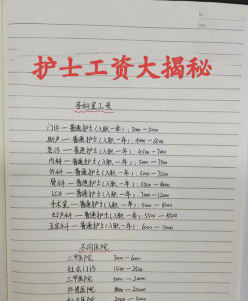 No.
Date.
护士工资大揭秘
各科室工资
门诊—普通护士(入职一年):3000-5000
助产—普通护士(入职一年):4000-6000
急诊—普通护士(入职一年):4500-7000
内科—普通护士(入职一年):5000-7500
外科—普通护士(入职一年):5000-7500
骨科—普通护士(入职一年):5500-8000
ICU—普通护士(入职一年):7000-12000
手术室—普通护士(入职一年):5000-8000
妇产科—普通护士(入职一年):5500-8500
五官科—普通护士(入职一年):5000-7000
不同医院
二甲医院 3000-6000
社会门诊 1500-2500
三甲医院
外资医院